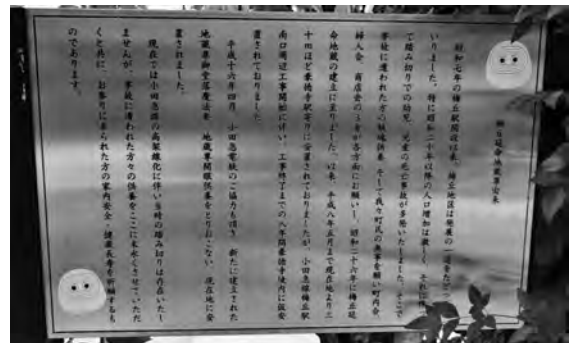 梅丘延命地蔵尊由来
昭和九年の梅丘駅開設以来、梅丘地区は発展の一途をたど
いりました。特に昭和二十年以降の人口増加は激しく、それに伴
て踏み切りでの幼児、児童の死亡事故が多発いたしました。そこで
事故に遭われた方の供養、そして我々町民の無事を願い町内会
婦人会、商店会の三者が各方面にお願いし、昭和二十六年に梅丘延
命地蔵の建立に至りました。以来、平成八年五月まで現在地より三
十mほど豪徳寺駅寄りに安置されておりましたが、小田急線梅丘駅
南口周辺工事開始に伴い、工事終了までの八年間豪徳寺境内に仮安
置されておりました。
平成十六年四月、小田急電鉄のご協力も頂き、新たに建立された
地蔵尊御堂落慶法要、地蔵尊開眼供養をとりおこない、現在地に安
置されました。
現在では小田急線の高架線化に伴い当時の踏み切りは存在いたし
ませんが、事故に遭われた方々の供養をここに末永くさせていただ
くと共に、お参りに来られた方の家内安全・健康長寿を祈願するも
のであります。